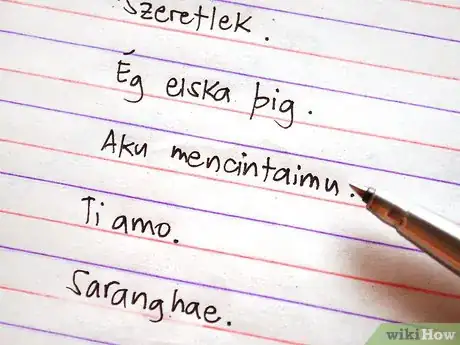 Szeretlek.
Ég elska þig.
Aku mencintaimu.
Ti amo.
Saranghae.
wikiHow